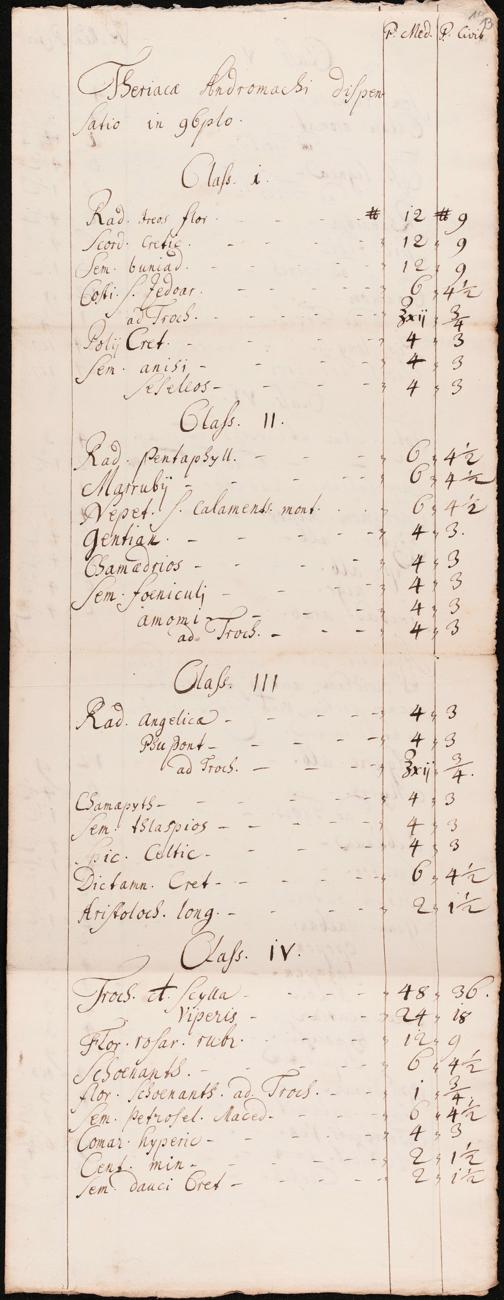 P. Med. P. Civil
Theriacæ Andromachi dispen
satio in 96plo.
Class. i.
Rad. Ireos flor. - - - ℔ 12 ℔ 9
Scord. Cretic. - - - „ 12 „ 9
Sem. buniad. - - - „ 12 „ 9
Costi. s. Zedoar. - - - „ 6 „ 4½
ad Troch. - - - „ ℥xij „ ¾
Polij Cret. - - - „ 4 „ 3
Sem. anisi - - - „ 4 „ 3
Seseleos - - - „ 4 „ 3
Class. II.
Rad. Pentaphyll. - - - „ 6 „ 4½
Marrubij - - - „ 6 „ 4½
Nepet. s. Calament. mont. . . „ 6 „ 4½
Gentian. - - - „ 4 „ 3.
Chamædrios - - - „ 4 „ 3
Sem. foeniculj - - - „ 4 „ 3
amomi - - - „ 4 „ 3
ad Troch. - - - „ 4 „ 3
Class. III
Rad. Angelicæ - - - „ 4 „ 3
Phu pont - - - „ 4 „ 3
ad Troch. - - - „ ℥xij „ ¾.
Chamapyth - - - „ 4 „ 3
Sem. thlaspios - - - „ 4 „ 3
Spic. Celtic - - - „ 4 „ 3
Dictamn. Cret - - - „ 6 „ 4½
Aristoloch. long. - - - „ 2 „ 1½
Class. IV.
Troch. Scylla - - - „ 48 „ 36.
Viperis - - - „ 24 „ 18
Flor. rosar. rubr. - - - „ 12 „ 9
Schoenanth. - - - „ 6 „ 4½
flor. Schoenanth. ad Troch. - - - „ 1 „ ¾
Sem. Petrosel. Maced. - - - „ 6 „ 4½
Comar. hyperic - - - „ 4 „ 3
Cent. min - - - „ 2 „ 1½
Sem. dauci Cret - - - „ 2 „ 1½